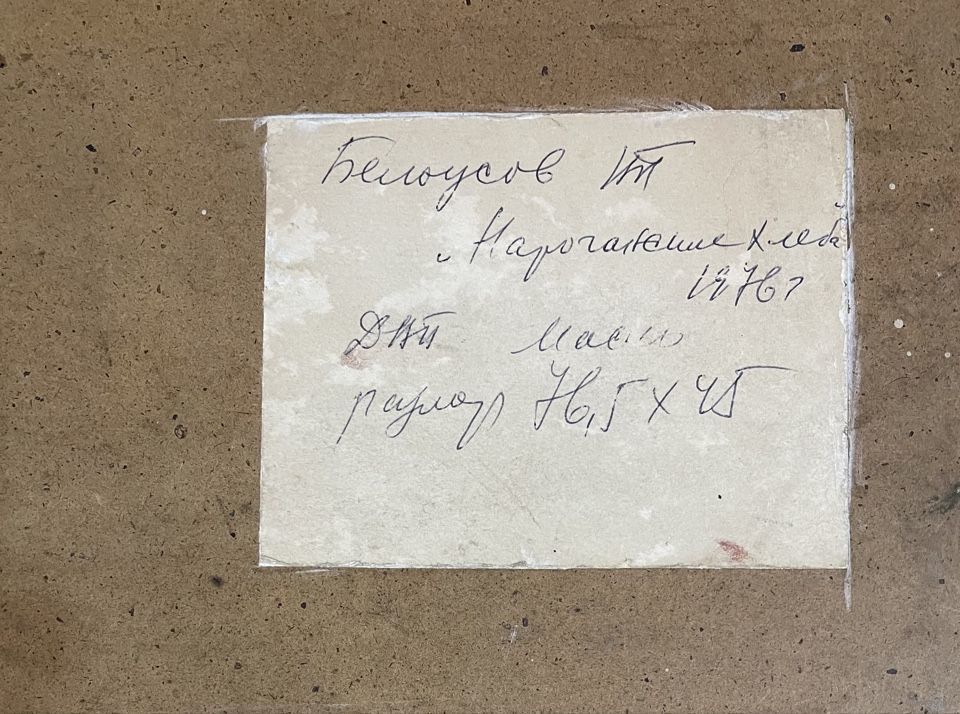 Белоусов ПП
„Нарочанские хлеба
1976 г
ДВП масло
размер 76,5 х 45